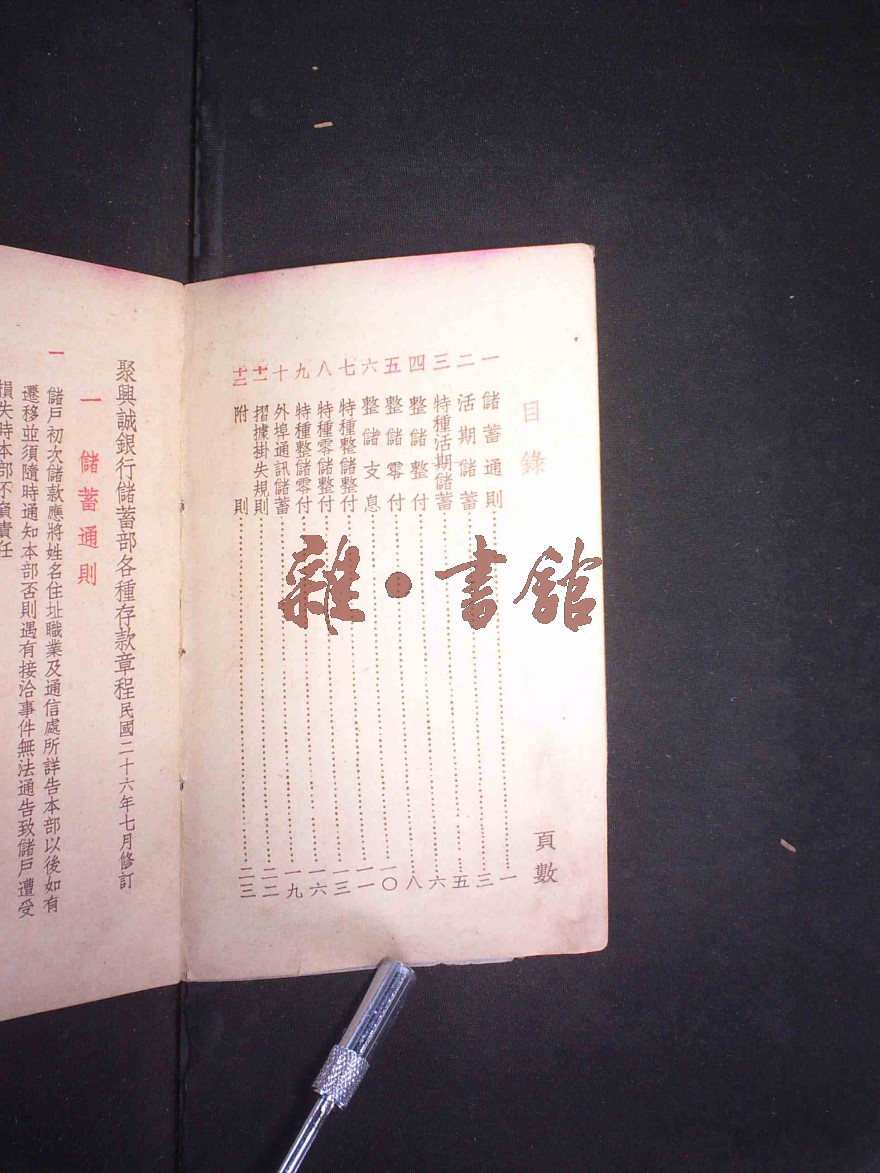 目錄 頁數
一 儲蓄通則……一
二 活期儲蓄……三
三 特種活期儲蓄……五
四 整儲整付……六
五 整儲零付……八
六 整儲支息……一〇
七 特種整儲整付……一一
八 特種零儲整付……一三
九 特種整儲零付……一六
十 外埠通訊儲蓄……一九
十一 摺據掛失規則……二二
十二 附則……二三
聚興誠銀行儲蓄部各種存款章程 民國二十六年七月修訂
一 儲蓄通則
一 儲戶初次儲款應將姓名住址職業及通信處所詳告本部以後如有
遷移並須隨時通知本部否則遇有接洽事件無法通告致儲戶遭受
損失時本部不負責任
雜·書館